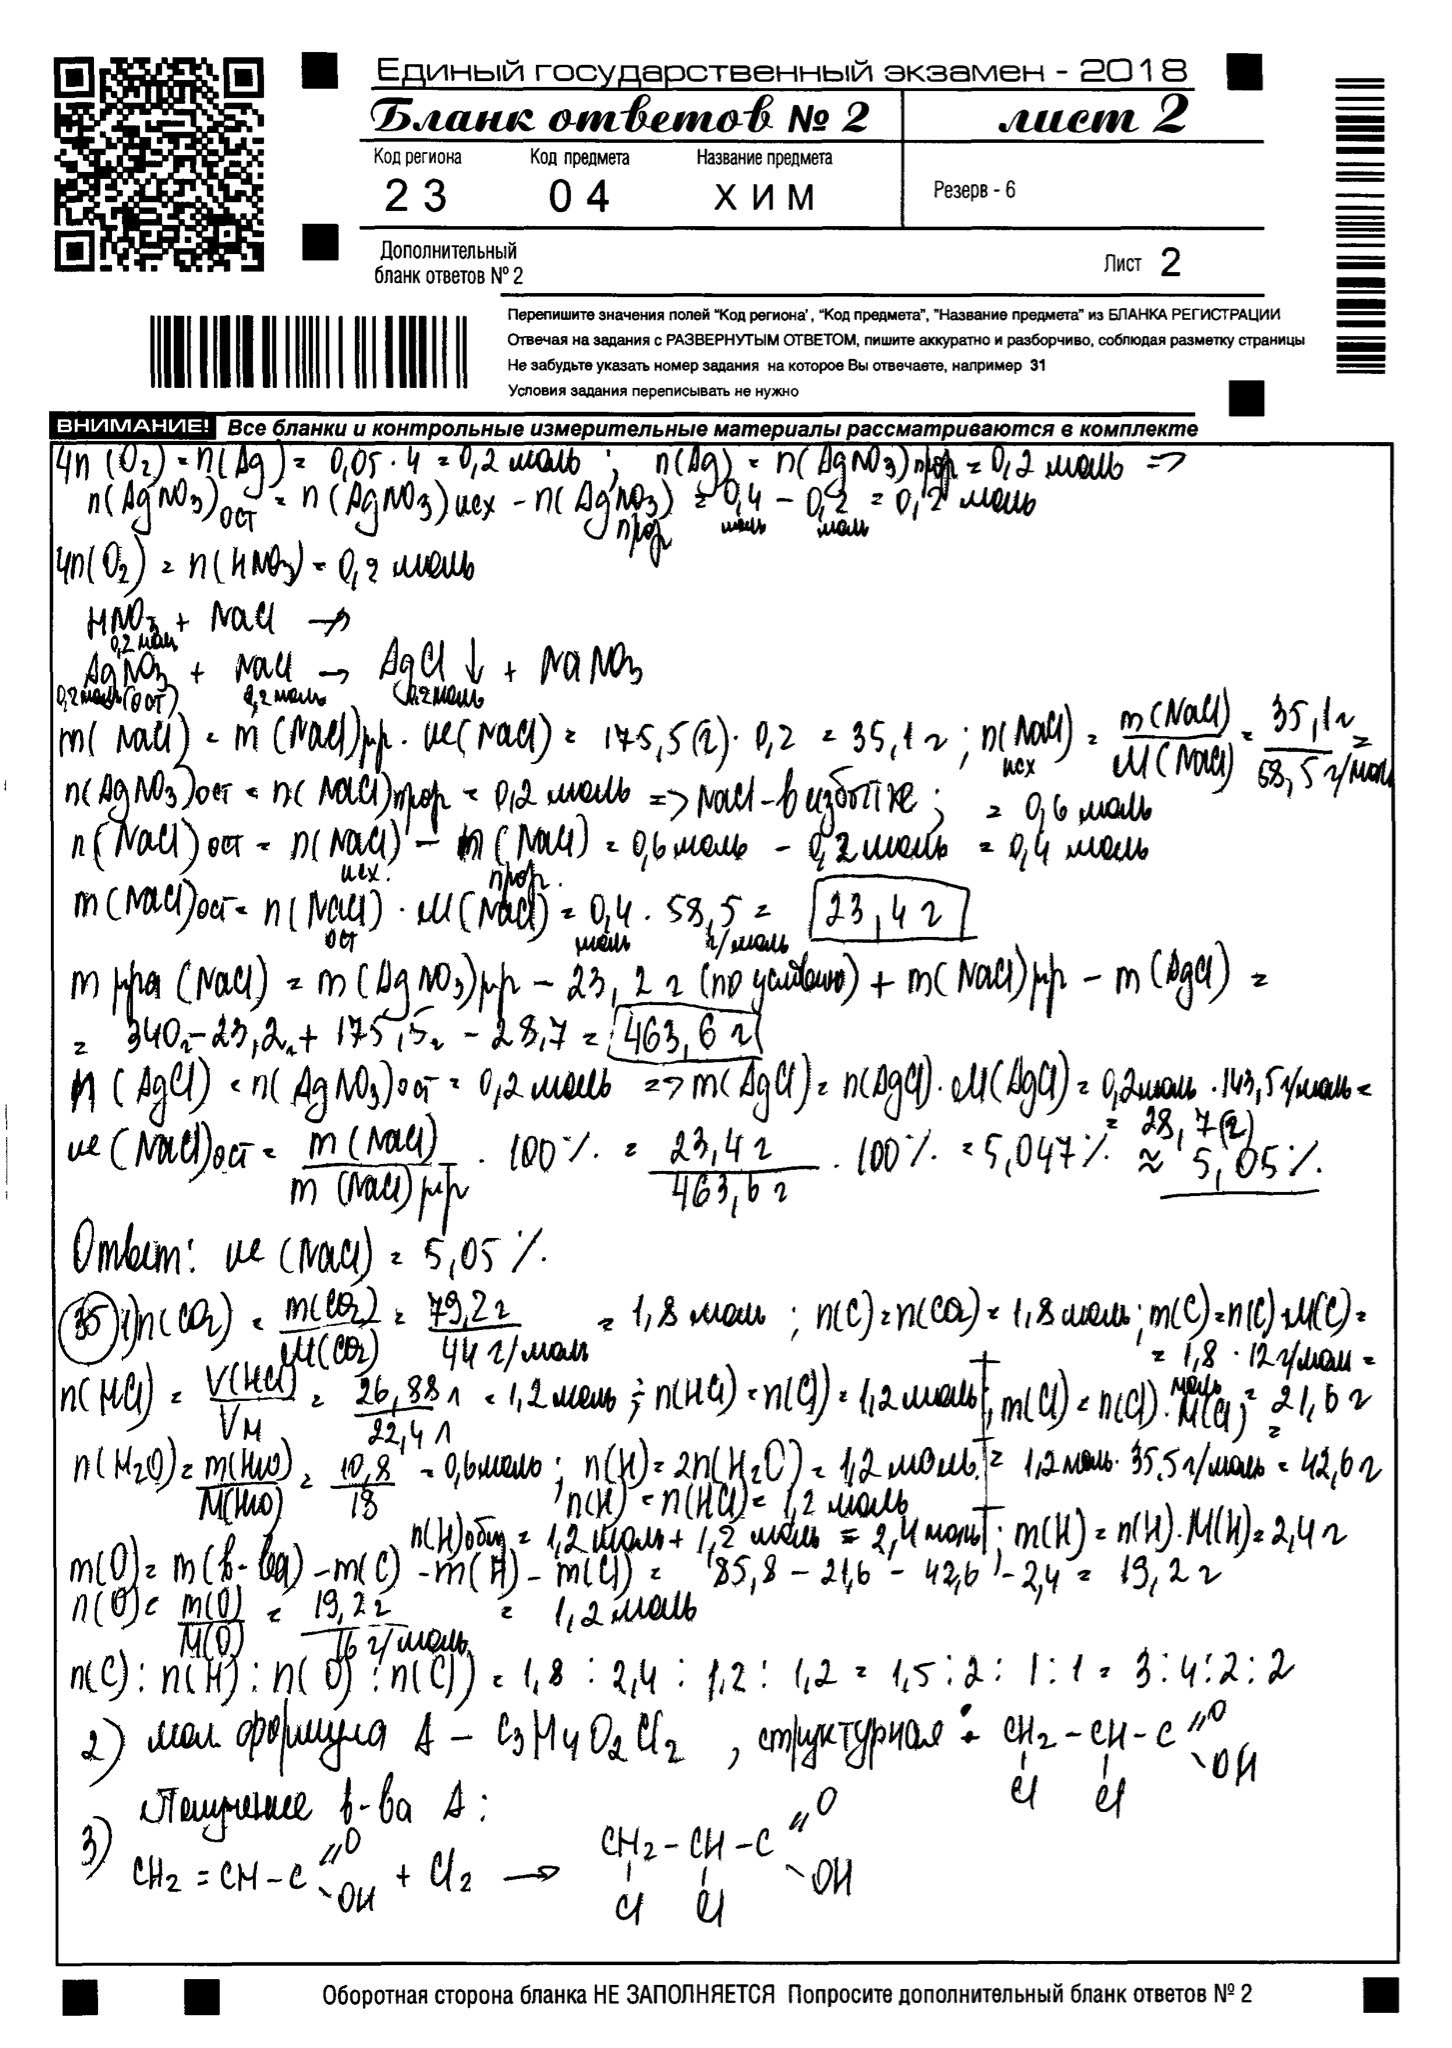 Единый государственный экзамен - 2018
Бланк ответов № 2 лист 2
Код региона Код предмета Название предмета
23 04 ХИМ Резерв - 6
Дополнительный
бланк ответов № 2 Лист 2
Перепишите значения полей "Код региона", "Код предмета", "Название предмета" из БЛАНКА РЕГИСТРАЦИИ
Отвечая на задания с РАЗВЕРНУТЫМ ОТВЕТОМ, пишите аккуратно и разборчиво, соблюдая разметку страницы
Не забудьте указать номер задания на которое Вы отвечаете, например 31
Условия задания переписывать не нужно
ВНИМАНИЕ! Все бланки и контрольные измерительные материалы рассматриваются в комплекте
4n(O₂) = n(Ag) = 0,05 · 4 = 0,2 моль ; n(Ag) = n(AgNO₃)прор = 0,2 моль =>
n(AgNO₃)ост = n(AgNO₃)исх - n(AgNO₃)прор = 0,4 моль - 0,2 моль = 0,2 моль
4n(O₂) = n(HNO₃) = 0,2 моль
HNO₃ + NaCl ↛
0,2 моль
AgNO₃ + NaCl → AgCl ↓ + NaNO₃
0,2 моль (ост) 0,2 моль 0,2 моль
m(NaCl) = m(NaCl)р-р · ω(NaCl) = 175,5(г) · 0,2 = 35,1 г ; n(NaCl)исх = m(NaCl)/M(NaCl) = 35,1 г/58,5 г/моль =
n(AgNO₃)ост = n(NaCl)прор = 0,2 моль => NaCl - в избытке ; = 0,6 моль
n(NaCl)ост = n(NaCl)исх. - n(NaCl)прор. = 0,6 моль - 0,2 моль = 0,4 моль
m(NaCl)ост = n(NaCl)ост · M(NaCl) = 0,4 моль · 58,5 г/моль = 23,4 г
m р-ра (NaCl) = m(AgNO₃)р-р - 23,2 г (по условию) + m(NaCl)р-р - m(AgCl) =
= 340г - 23,2г + 175,5г - 28,7 = 463,6 г
n(AgCl) = n(AgNO₃)ост = 0,2 моль => m(AgCl) = n(AgCl) · M(AgCl) = 0,2моль · 143,5 г/моль =
= 28,7(г)
ω(NaCl)ост = m(NaCl)/m(NaCl)р-р · 100% = 23,4 г/463,6 г · 100% = 5,047% ≈ 5,05%
Ответ: ω(NaCl) = 5,05%.
35 1) n(CO₂) = m(CO₂)/M(CO₂) = 79,2 г/44 г/моль = 1,8 моль ; n(C) = n(CO₂) = 1,8 моль ; m(C) = n(C) · M(C) =
= 1,8 моль · 12 г/моль =
n(HCl) = V(HCl)/Vм = 26,88 л/22,4 л = 1,2 моль ; n(HCl) = n(Cl) = 1,2 моль ; m(Cl) = n(Cl) · M(Cl) = = 21,6 г
n(H₂O) = m(H₂O)/M(H₂O) = 10,8/18 = 0,6 моль ; n(H) = 2n(H₂O) = 1,2 моль. = 1,2 моль · 35,5 г/моль = 42,6 г
n(H) = n(HCl) = 1,2 моль
n(H)общ = 1,2 моль + 1,2 моль = 2,4 моль ; m(H) = n(H) · M(H) = 2,4 г
m(O) = m(в-ва) - m(C) - m(H) - m(Cl) = 85,8 - 21,6 - 42,6 - 2,4 = 19,2 г
n(O) = m(O)/M(O) = 19,2 г/16 г/моль = 1,2 моль
n(C) : n(H) : n(O) : n(Cl) = 1,8 : 2,4 : 1,2 : 1,2 = 1,5 : 2 : 1 : 1 = 3 : 4 : 2 : 2
2) мол. формула A - C₃H₄O₂Cl₂ , структурная : CH₂ - CH - C =O - OH
Cl Cl
Получение в-ва A :
3) CH₂ = CH - C =O - OH + Cl₂ → CH₂ - CH - C =O - OH
Cl Cl
Оборотная сторона бланка НЕ ЗАПОЛНЯЕТСЯ Попросите дополнительный бланк ответов № 2